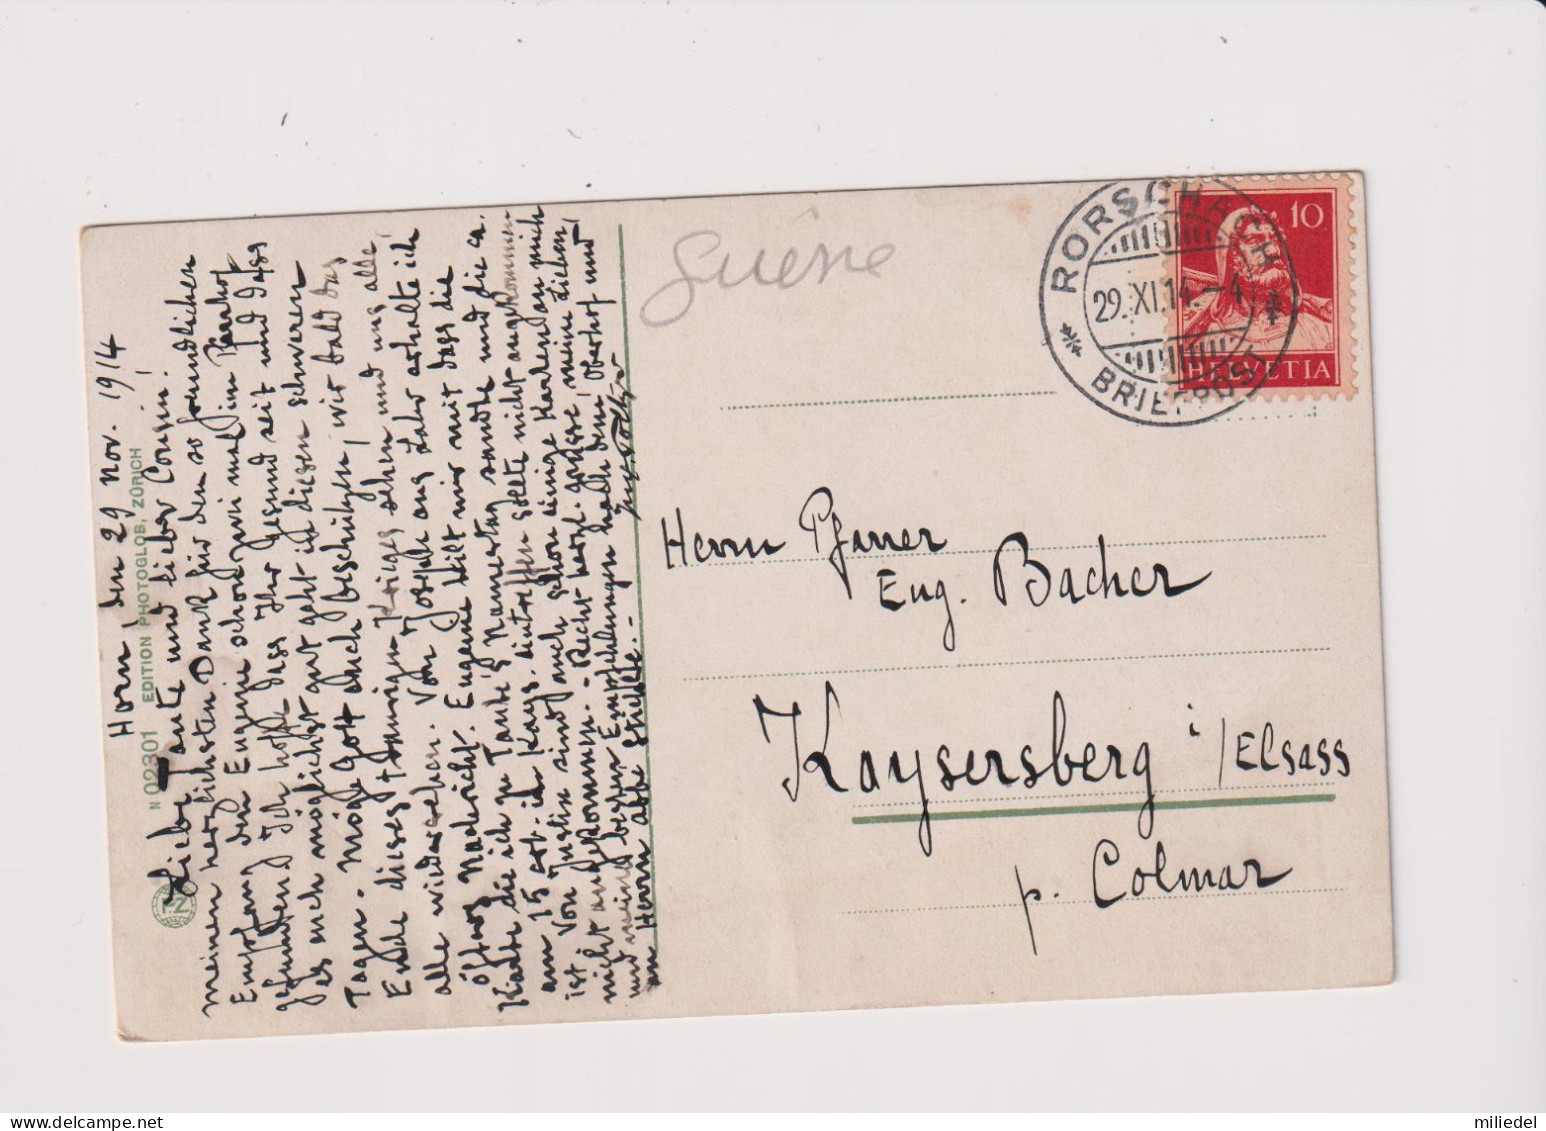 Horn, den 29 Nov. 1914
Liebe Tante und lieber Cousin!
meinen herzlichsten Dank für den so freundlichen
Empfang den Eugenie schon zwei mal im Pfarrhof
gefunden! Ich hoffe dass Ihr gesund seit und dass
es euch möglichst gut geht in diesen schweren
Tagen. Möge Gott Euch beschützen, wir bald das
Ende dieses traurigen Krieges sehen und uns alle
alle wiedersehen. Von Joseph aus Lahr erhalte ich
öfters Nachricht. Eugenie teilt mir mit dass die
Karte die ich zu Tante's Namenstag sandte und die ca.
am 15 oct. in Kays. eintreffen sollte nicht angekommen
ist. Von Justin sind auch schon einige Karten an mich
nicht angekommen. - Recht herzl. grüsse, meine Lieben,
und meine besten Empfehlungen nach dem Oberhof und
an Herrn Abbé
N 02301 EDITION PHOTOGLOB, ZÜRICH
PZ
Suisse
RORSCHACH
29.XI.14.-4
BRIEFPOST
10
HELVETIA
Herrn Pfarrer
Eug. Bacher
Kaysersberg i/Elsass
p. Colmar
delcampe.net
miliedel